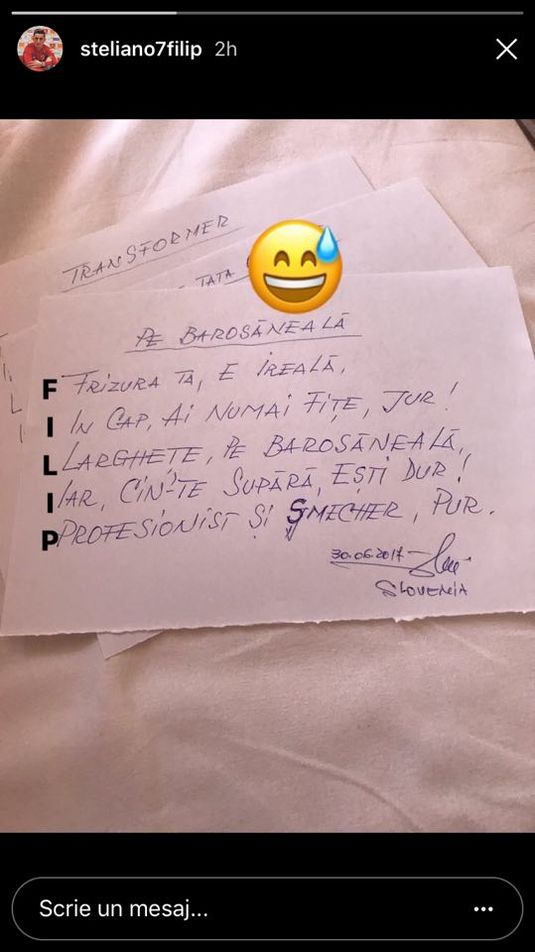 steliano7filip 2h
TRANSFORMER
- TATA
PE BAROSĂNEALĂ
F FRIZURA TA, E IREALĂ,
I IN CAP, AI NUMAI FIȚE, JUR!
L LARGHEȚE, PE BAROSĂNEALĂ,
I IAR, CIN'-TE SUPĂRĂ, EȘTI DUR!
P PROFESIONIST ȘI ȘMECHER, PUR.
30.06.2017
SLOVENIA
Scrie un mesaj...